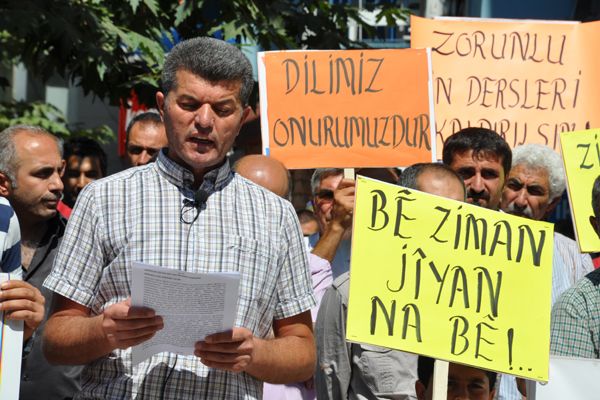 DİLİMİZ
ONURUMUZDUR
ZORUNLU
DİN DERSLERİ
KALDIRILSIN
BÊ ZIMAN
JÎYAN
NA BÊ!..
Zİ